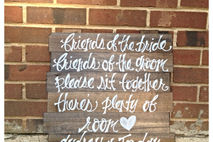 friends of the bride
friends of the groom
please sit together
theres plenty of
room